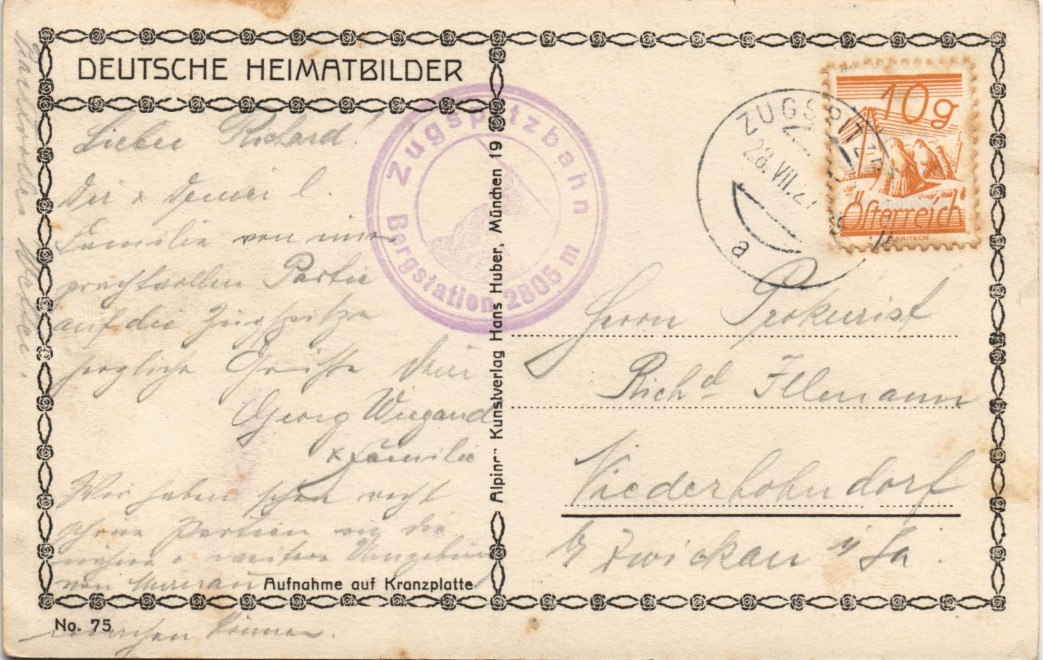 DEUTSCHE HEIMATBILDER
Lieber Richard!
Dir & Deiner l.
Familie von einer
prachtvollen Partie
auf die Zugspitze
herzliche Grüße Dein
Georg Wiegand
& Familie
Wir haben schon recht
schöne Partien in die
nähere & weitere Umgebung
von Murnau
machen können.
Prachtvolles Wetter.
Aufnahme auf Kranzplatte
No. 75
Zugspitzbahn
Bergstation 2805 m
Alpiner Kunstverlag Hans Huber, München 19
ZUGSPITZE
28.VII.27
a
10g
Österreich
Herrn Prokurist
Richd Illmann
Niederhohndorf
b/ Zwickau i/Sa.